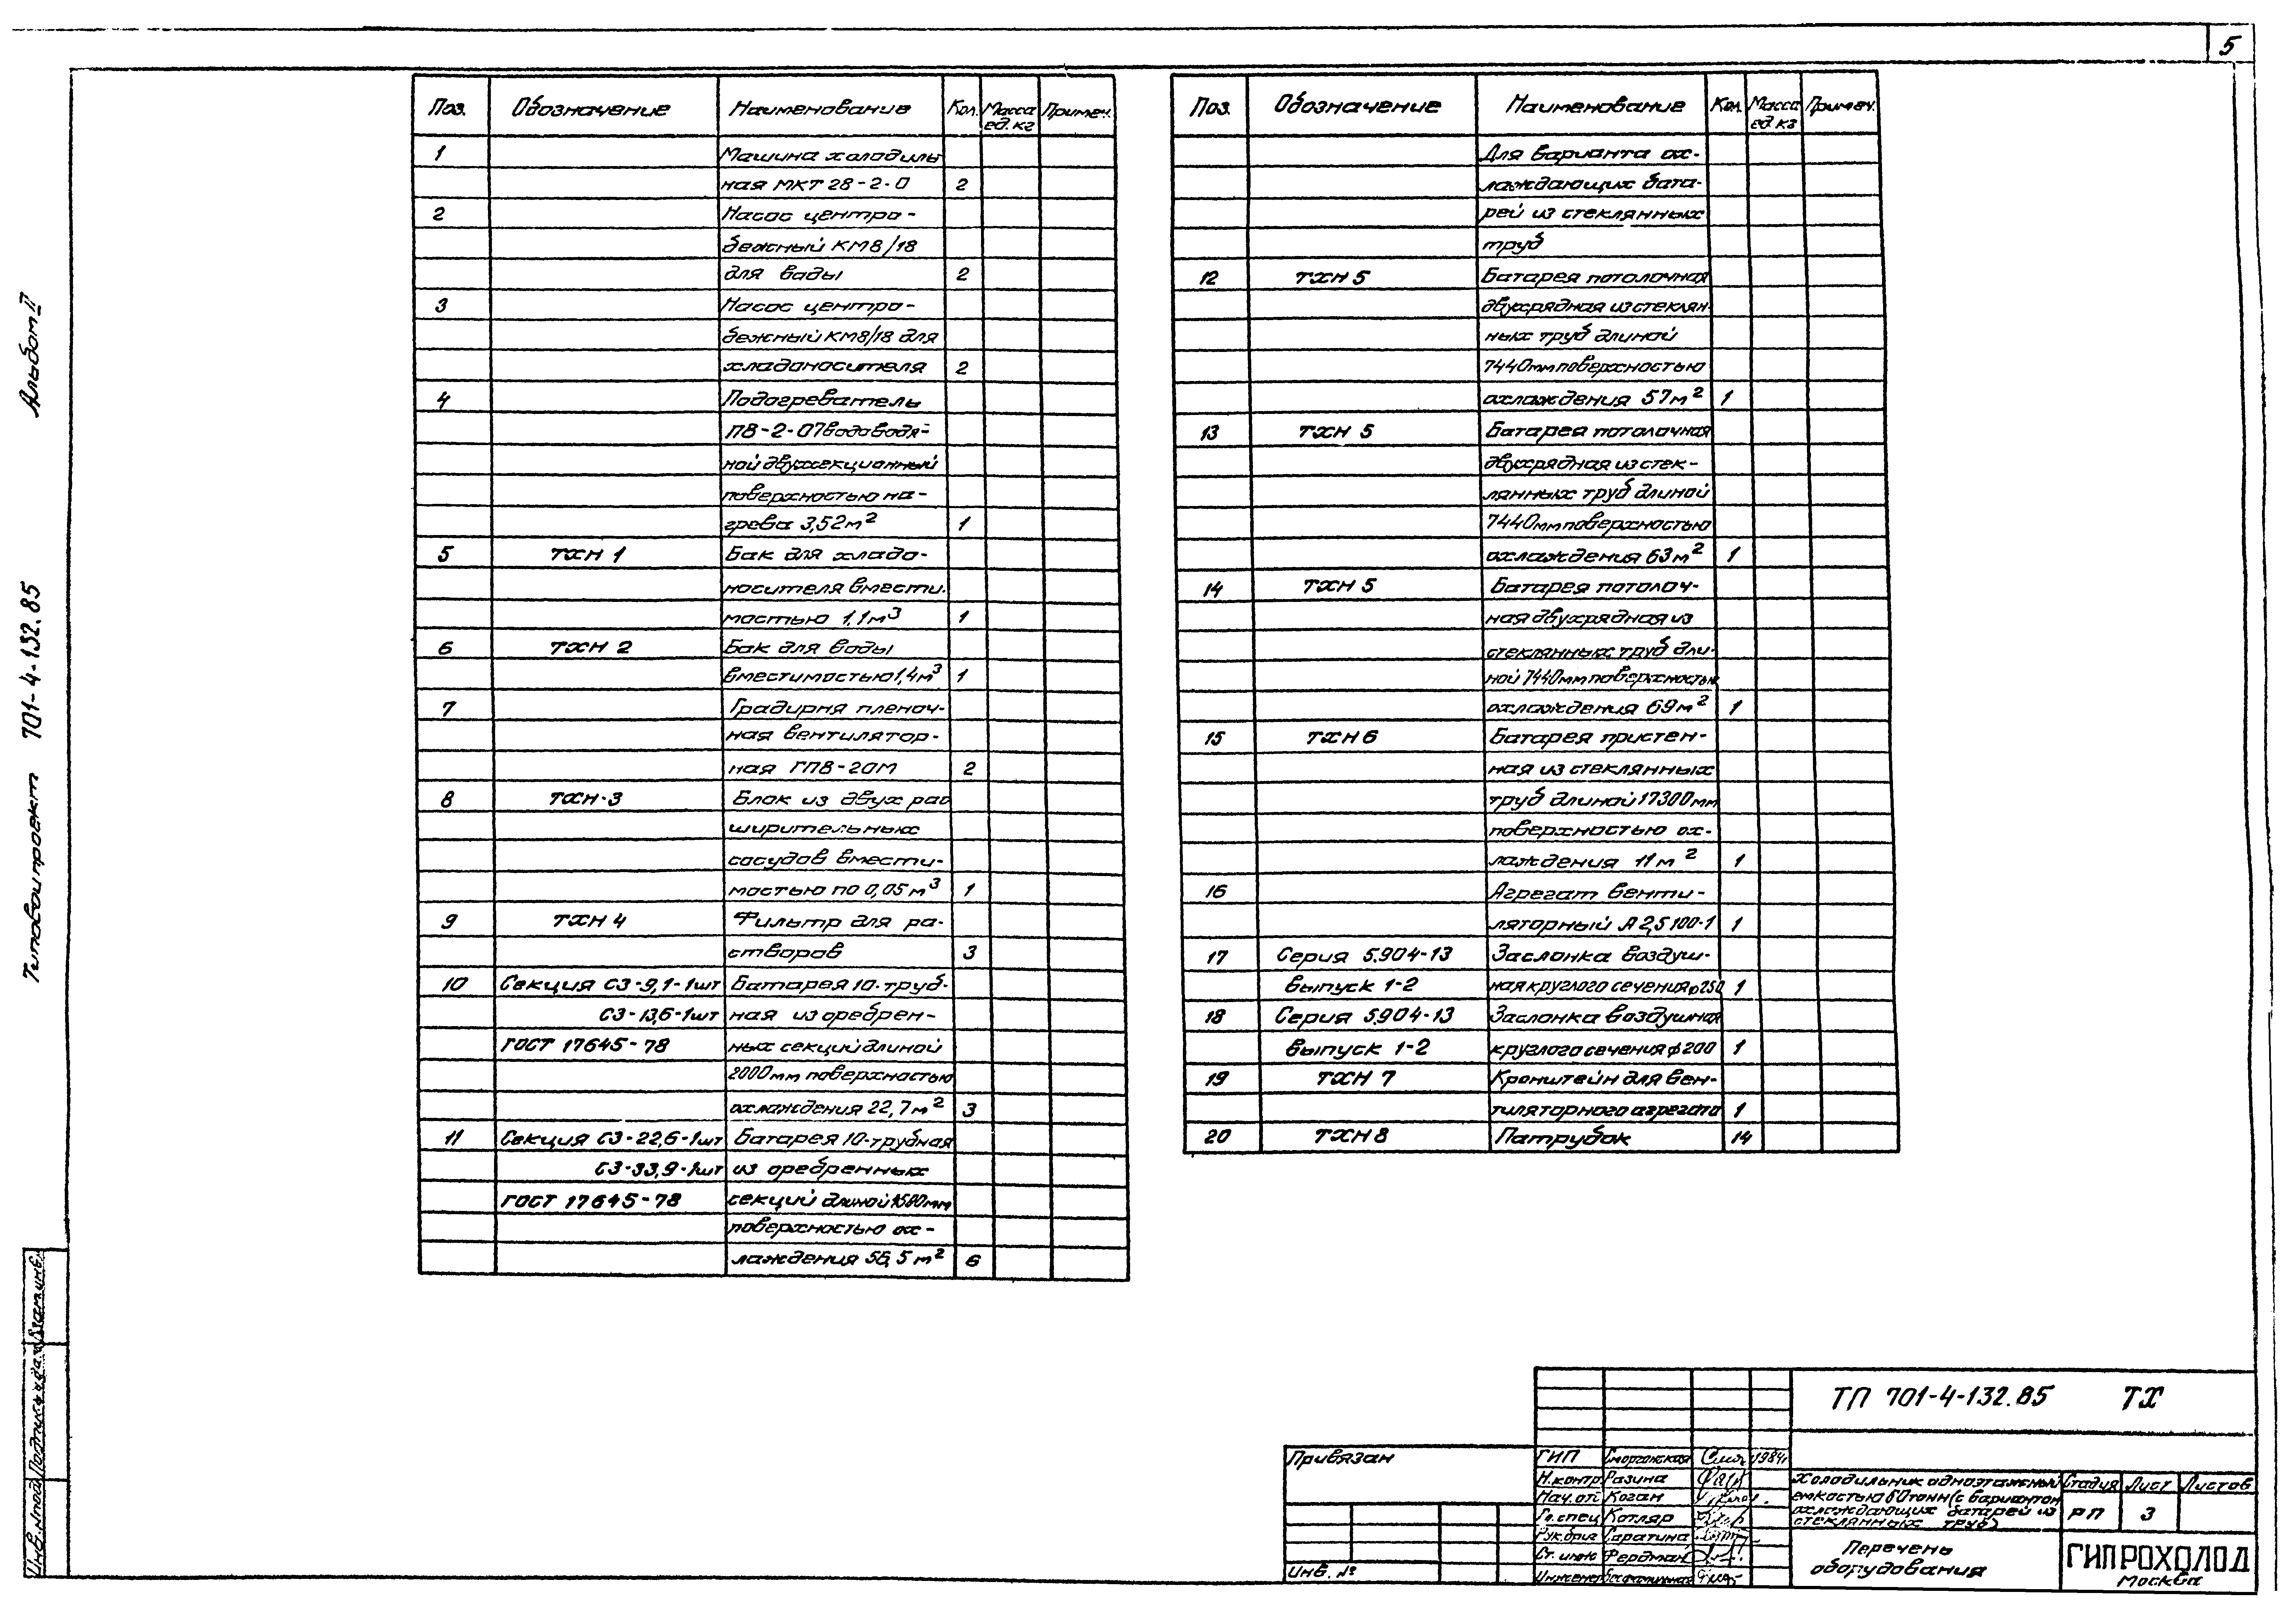 5
Альбом II
Типовой проект 701-4-132.85
Поз. Обозначение Наименование Кол. Масса ед. кг Примеч.
1 Машина холодиль
ная МКТ 28-2-0 2
2 Насос центро-
бежный КМ8/18
для воды 2
3 Насос центро-
бежный КМ8/18 для
хладоносителя 2
4 Подогреватель
ПВ-2-07 водоводя-
ной двухсекционный
поверхностью на-
грева 3,52 м² 1
5 ТХН 1 Бак для хладо-
носителя вмести-
мостью 1,1 м³ 1
6 ТХН 2 Бак для воды
вместимостью 1,4 м³ 1
7 Градирня пленоч-
ная вентилятор-
ная ГПВ-20М 2
8 ТХН-3 Блок из двух рас
ширительных
сосудов вмести-
мостью по 0,05 м³ 1
9 ТХН 4 Фильтр для ра-
створов 3
10 Секция С3-9,1-1шт Батарея 10-труб-
С3-13,6-1шт ная из оребрен-
ГОСТ 17645-78 ных секций длиной
2000мм поверхностью
охлаждения 22,7 м² 3
11 Секция С3-22,6-1шт Батарея 10-трубная
С3-33,9-1шт из оребренных
ГОСТ 17645-78 секций длиной мм
поверхностью ох-
лаждения 56,5 м² 6
Поз. Обозначение Наименование Кол. Масса ед. кг Примеч.
Для варианта ох-
лаждающих бата-
рей из стеклянных
труб
12 ТХН 5 Батарея потолочная
двухрядная из стеклян
ных труб длиной
7440мм поверхностью
охлаждения 57 м² 1
13 ТХН 5 Батарея потолочная
двухрядная из стек-
лянных труб длиной
7440мм поверхностью
охлаждения 63 м² 1
14 ТХН 5 Батарея потолоч-
ная двухрядная из
стеклянных труб дли-
ной 7440мм поверхностью
охлаждения 69 м² 1
15 ТХН 6 Батарея пристен-
ная из стеклянных
труб длиной 17300 мм
поверхностью ох-
лаждения 11 м² 1
16 Агрегат венти-
ляторный А 2,5 100-1 1
17 Серия 5.904-13 Заслонка воздуш-
выпуск 1-2 ная круглого сечения ф250 1
18 Серия 5.904-13 Заслонка воздушная
выпуск 1-2 круглого сечения ф200 1
19 ТХН 7 Кронштейн для вен-
тиляторного агрегата 1
20 ТХН 8 Патрубок 14
Инв. № подл. Подпись и дата Взам. инв.
ТП 701-4-132.85 ТХ
Привязан
Инв. №
ГИП Сморгонская 1984г
Н.контр Разина
Нач. от Коган
Гл. спец Котляр
Рук. бриг Саратина
Ст. инж Фердман
Инженер
Холодильник одноэтажный
емкостью 60 тонн (с вариантом
охлаждающих батарей из
стеклянных труб)
Стадия Лист Листов
РП 3
Перечень
оборудования
ГИПРОХОЛОД
Москва